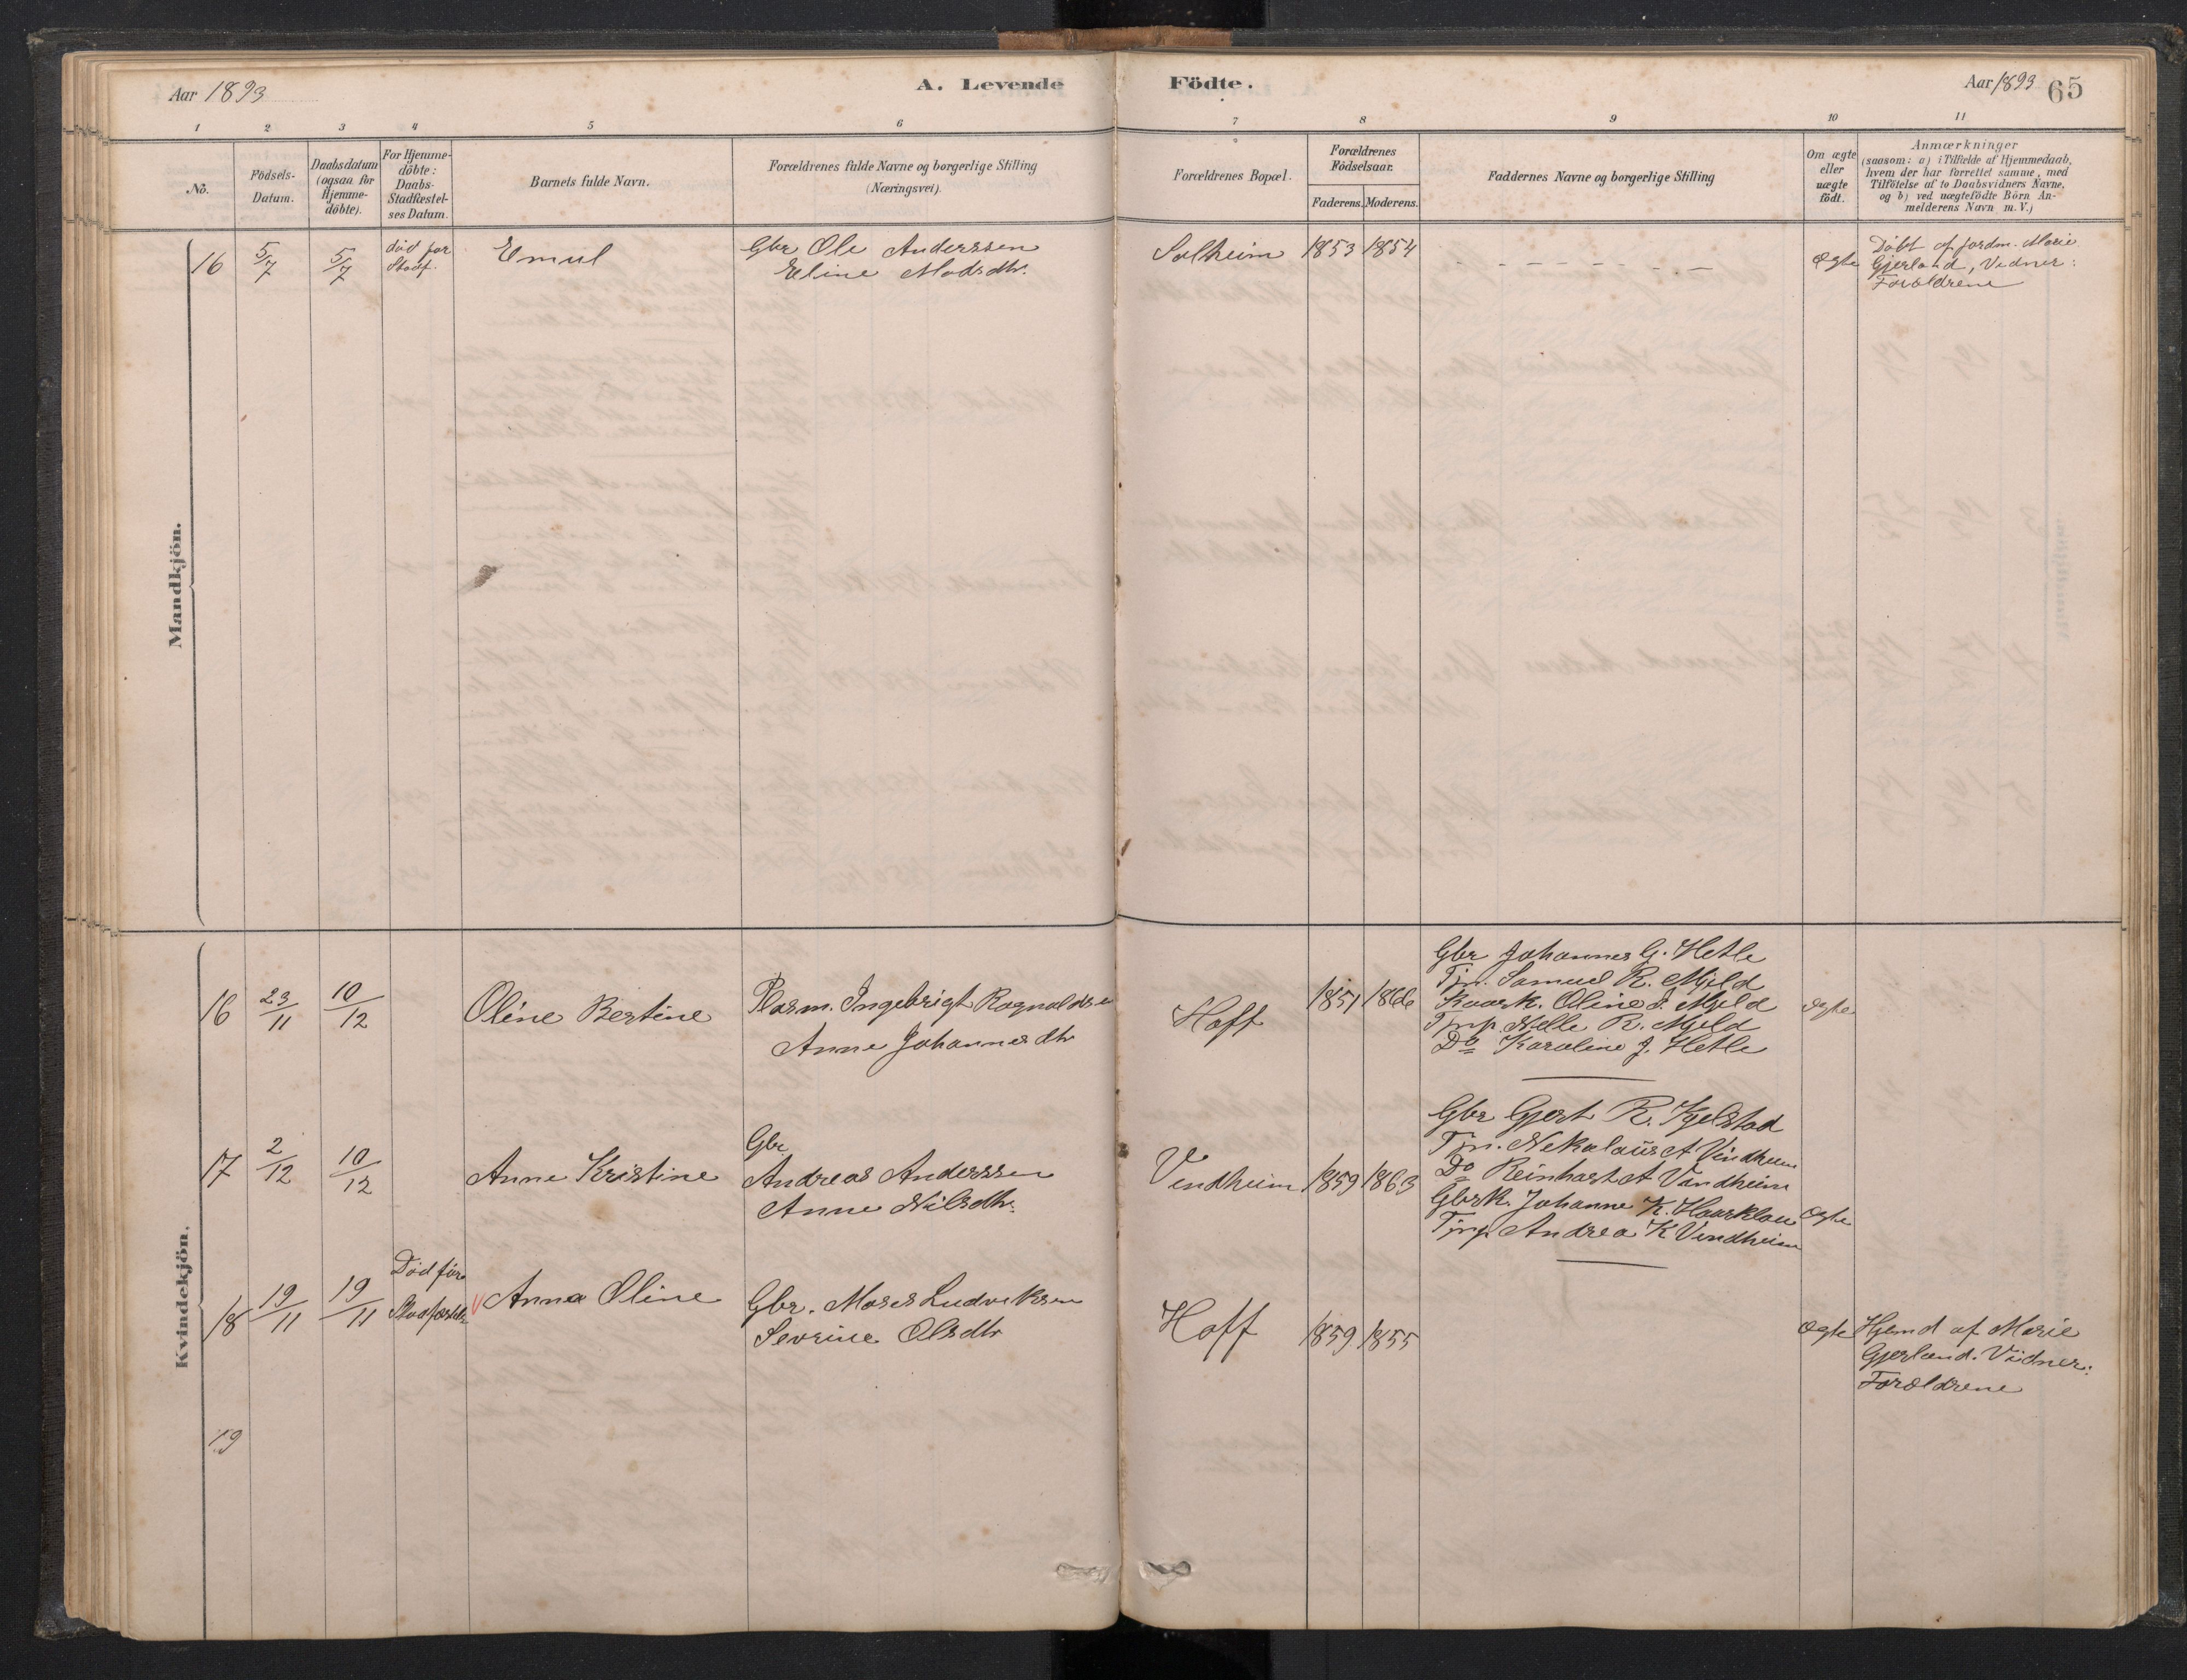 Aar 1893
A. Levende Födte.
Aar 1893 65
1 2 3 4 5 6 7 8 9 10 11
Nö.
Födsels-Datum.
Daabsdatum (ogsaa för Hjemme-döbte).
For Hjemme-döbte: Daabs-Stadfæstel-ses Datum.
Barnets fulde Navn.
Forældrenes fulde Navne og borgerlige Stilling (Næringsvei).
Forældrenes Bopæl.
Forældrenes Födselsaar.
Faderens. Moderens.
Faddernes Navne og borgerlige Stilling
Om ægte eller uægte födt.
Anmærkninger
(saasom: a) i Tilfælde af Hjemmedaab,
hvem der har forrettet samme, med
Tilföielse af to Daabsvidners Navne,
og b) ved uægtefödte Börn An-
melderens Navn m. V.)
Mandkjön.
16 5/7 5/7 död för Stadf. Emul
Gbr Ole Anderssen
Eline Madsdtr.
Solheim 1853 1854 - - - - - - - Ægte
Döbt af jordm. Marie
Gjerland, Vidner:
Forældrene
Kvindekjön.
16 23/11 10/12 Oline Bertine
Plasm. Ingebrigt Ragnaldsen
Anne Johannesdtr
Hoff 1851 1866
Gbr Johannes G. Hetle
Tjn. Samuel R. Mjeld
Kaark. Oline J. Mjeld
Tjnp. Helle R. Mjeld
Do Karoline J. Hetle
ægte
17 2/12 10/12 Anne Kristine
Gbr
Andreas Anderssen
Anne Nilsdtr.
Vendheim 1859 1863
Gbr Gjert R. Kjelstad
Tjn. Nekolaus A Vindheim
Do Reinhart A Vindheim
Gbrk. Johanne K. Haarklau
Tjnp. Andrea K Vindheim
Ægte
18 19/11 19/11 Död för Stadfæstels
Anna Oline
Gbr. Moses Ludviksen
Sevrine Olsdtr
Hoff 1859 1855 Ægte
Hjemd af Marie
Gjerland. Vidner:
Forældrene
19